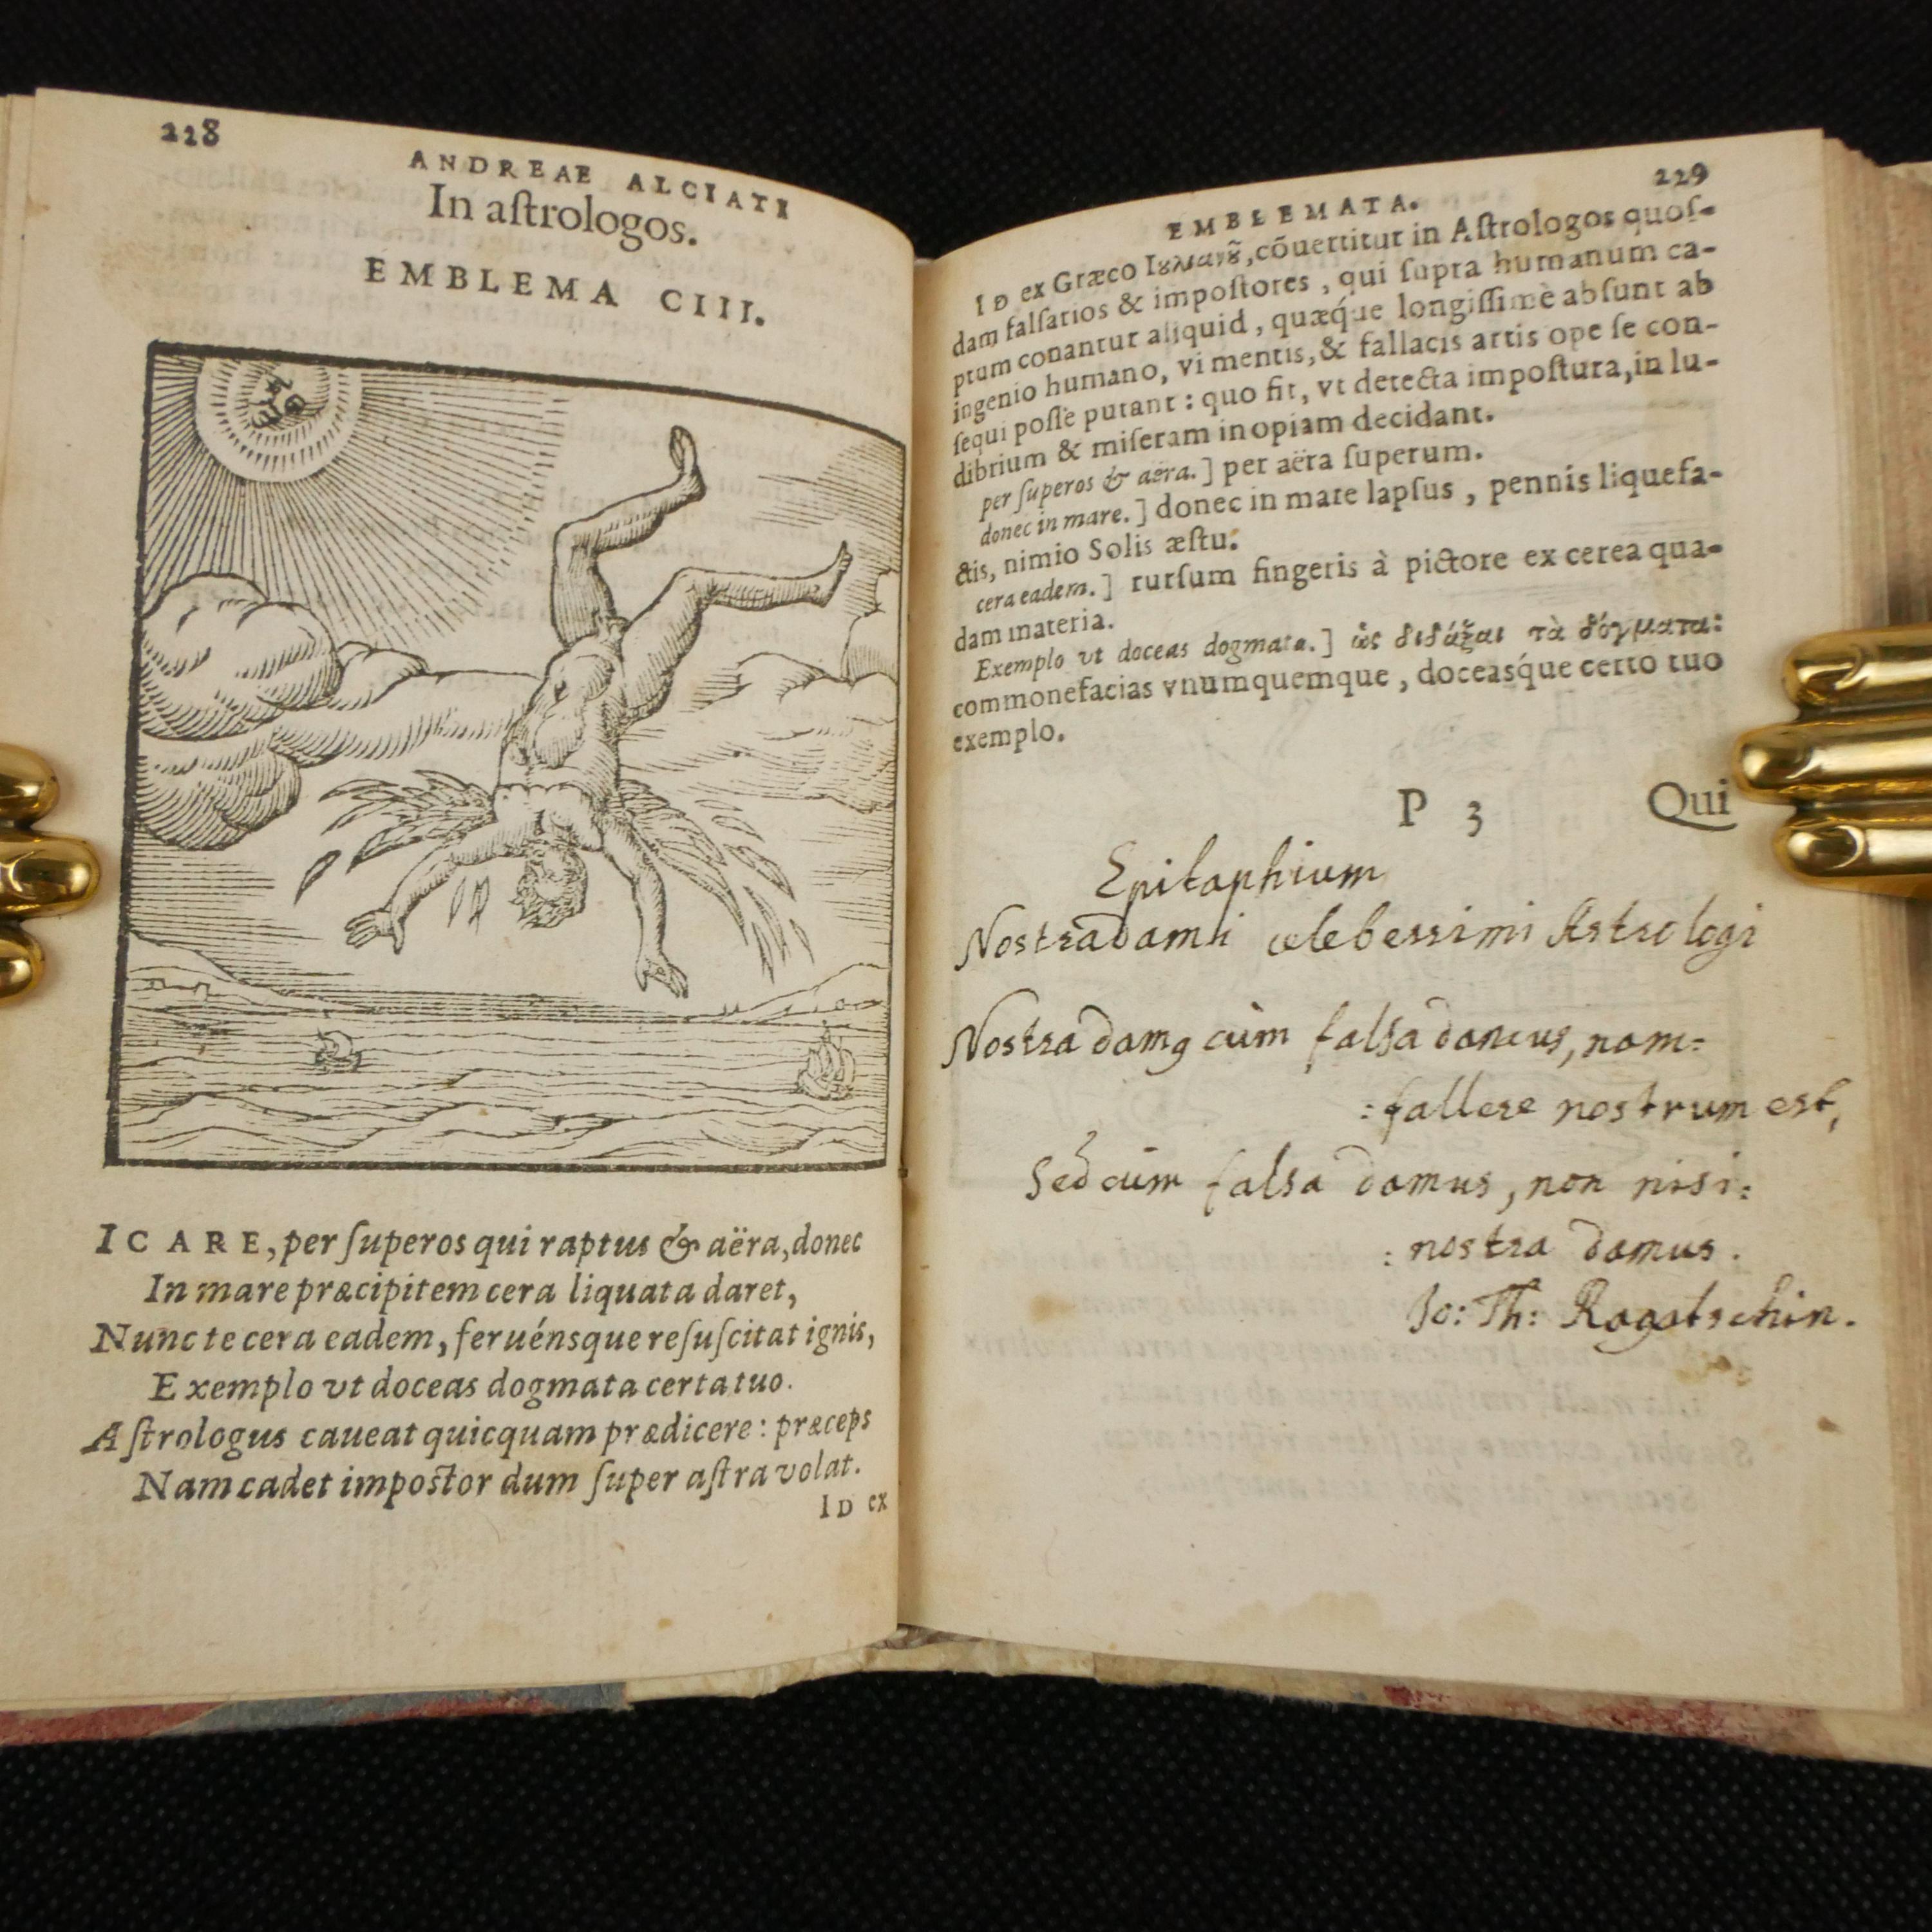 228
ANDREAE ALCIATI
In aſtrologos.
EMBLEMA CIII.
ICARE, per ſuperos qui raptus & aëra, donec
In mare præcipitem cera liquata daret,
Nunc te cera eadem, feruénsque reſuſcitat ignis,
Exemplo vt doceas dogmata certa tuo.
Aſtrologus caueat quicquam prædicere: præceps
Nam cadet impoſtor dum ſuper aſtra volat.
ID ex
229
EMBLEMATA.
ID ex Græco Ιȣλιανȣ̃, cōuertitur in Aſtrologos quoſ-
dam falſarios & impoſtores, qui ſupra humanum ca-
ptum conantur aliquid, quæq́ue longiſſimè abſunt ab
ingenio humano, vi mentis, & fallacis artis ope ſe con-
ſequi poſſe putant: quo fit, vt detecta impoſtura, in lu-
dibrium & miſeram inopiam decidant.
per ſuperos & aëra.] per aëra ſuperum.
donec in mare.] donec in mare lapſus, pennis liquefa-
ctis, nimio Solis æſtu.
cera eadem.] rurſum fingeris à pictore ex cerea qua-
dam materia.
Exemplo vt doceas dogmata.] ὡς διδάξαι τὰ δόγματα:
commonefacias vnumquemque, doceaśque certo tuo
exemplo.
P 3
Qui
Epitaphium
Nostradami celeberrimi Astrologi
Nostra damꝰ cùm falsa damus, nam=
:fallere nostrum est,
Sed cùm falsa damus, non nisi:
: nostra damus.
Jo: Th: Rogatschin.